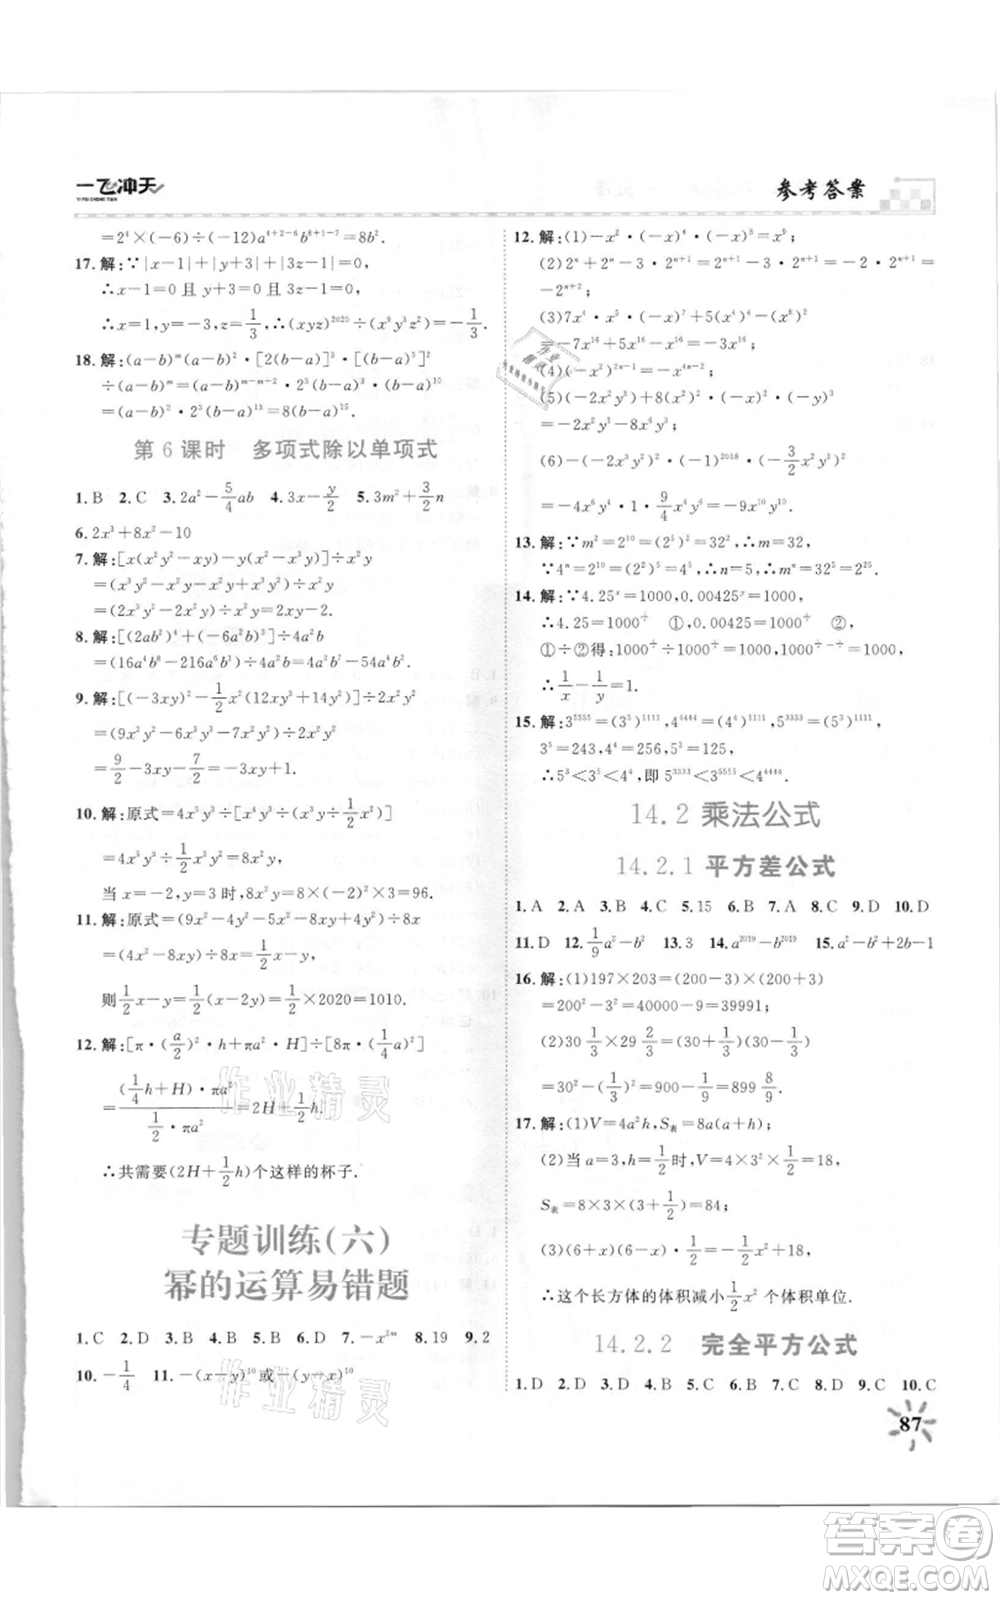 一飞冲天
YI FEI CHONG TIAN
参考答案
=2⁴×(-6)÷(-12)a⁴⁺²⁻⁶b⁸⁺¹⁻⁷=8b².
17.解:∵|x-1|+|y+3|+|3z-1|=0,
∴x-1=0 且 y+3=0 且 3z-1=0,
∴x=1,y=-3,z=1/3,∴(xyz)²⁰²⁰÷(x⁹y³z²)=-1/3.
18.解:(a-b)ᵐ(a-b)²·[2(a-b)ᵐ]³
÷(a-b)ᵐ·(a-b)ᵐ⁻ᵐ⁺²·(a-b)¹¹
=(a-b)²·2(a-b)¹³=8(a-b)¹⁵.
第 6 课时 多项式除以单项式
1.B 2.C 3.2a²-5/4ab 4.3x-y/2 5.3m²+3/2n
6.2x³+8x²-10
7.解:[x(x²y²-xy)-y(x²-x³y)]÷x²y
=(x³y²-x²y-x²y+x³y²)÷x²y
=(2x³y²-2x²y)÷x²y=2xy-2.
8.解:[(2ab²)⁴+(-6a²b²)³]÷4a²b
=(16a⁴b⁸-216a⁶b⁶)÷4a²b=4a²b⁷-54a⁴b⁵.
9.解:[(-3xy)²-1/2x²(12xy³-7y²)]÷2x²y²
=(9x²y²-6x³y³+7/2x²y²)÷2x²y²
=9/2-3xy-7/2=-3xy+1.
10.解:原式=4x⁵y³÷[x²y²-(-1/2x²y²)]
=4x⁵y³÷1/2x²y²=8x³y,
当 x=-2,y=3 时,8x³y=8×(-2)³×3=96.
11.解:原式=(9x²-4y²-5x²+10xy-2xy+4y²)÷8x
=(4x²+8xy)÷8x=1/2x+y=1/2(x+2y),
则 1/2x+y=1/2(x+2y)=1/2×2020=1010.
12.解:[π·(a/2)²·h+π(1/2·2a)²·H]÷[8π·(1/4a)²]
=(1/4h+H)·πa²/1/2·πa²=2H+1/2h.
∴共需要(2H+1/2h)个这样的杯子.
专题训练(六)
幂的运算易错题
1.C 2.D 3.B 4.B 5.B 6.D 7.-x²ᵐ 8.19 9.2
10.-1/4 11.-(x-y)¹⁰或-(y-x)¹⁰
12.解:(1)-x²·(-x)⁴·(-x)³=x⁹;
(2)2ⁿ+2ⁿ-3·2ⁿ⁺¹=2ⁿ⁺¹-3·2ⁿ⁺¹=-2·2ⁿ⁺¹=
-2ⁿ⁺²;
(3)7x⁴·x⁵·(-x)⁷+5(x⁴)⁴-(x⁸)²
=-7x¹⁶+5x¹⁶-x¹⁶=-3x¹⁶;
(4)(-x²)²ⁿ⁻¹=-x⁴ⁿ⁻²;
(5)(-2x²)³+x²·x⁴-(-3x³)²
=-2x⁶+x⁶-9x⁶=-16x⁶;
(6)-(-2x³y²)²·(-1)²⁰¹⁸·(-3/2x²y³)²
=-4x⁶y⁴·1·9/4x⁴y⁶=-9x¹⁰y¹⁰.
13.解:∵m²=2¹⁰=(2⁵)²=32²,∴m=32,
∵4ⁿ=2¹⁰=(2²)⁵=4⁵,∴n=5,∴m+n=37.
14.解:∵4.25ˣ=1000,0.00425ʸ=1000,
∴4.25=1000^(1/x) ① 0.00425=1000^(1/y) ②
①÷②得:1000^(1/x)÷1000^(1/y)=1000,
∴1/x-1/y=1.
15.解:3⁵⁵⁵⁵=(3⁵)¹¹¹¹,4⁴⁴⁴⁴=(4⁴)¹¹¹¹,5³³³³=(5³)¹¹¹¹,
3⁵=243,4⁴=256,5³=125,
∴5³<3⁵<4⁴,即 5³³³³<3⁵⁵⁵⁵<4⁴⁴⁴⁴.
14.2 乘法公式
14.2.1 平方差公式
1.A 2.A 3.B 4.C 5.15 6.B 7.A 8.C 9.D 10.D
11.D 12.1/9a²-b² 13.3 14.a²⁰¹⁹-b²⁰¹⁹ 15.a²-b²+2b-1
16.解:(1)197×203=(200-3)×(200+3)
=200²-3²=40000-9=39991;
(2)30 1/3×29 2/3=(30+1/3)×(30-1/3)
=30²-(1/3)²=900-1/9=899 8/9.
17.解:(1)V=4a²h,S表=8a(a+h);
(2)当 a=3,h=1/2时,V=4×3²×1/2=18,
S表=8×3×(3+1/2)=84;
(3)(6+x)(6-x)×1/2=-1/2x²+18,
∴这个长方体的体积减小1/2x² 个体积单位.
14.2.2 完全平方公式
1.D 2.D 3.C 4.D 5.B 6.D 7.D 8.A 9.C 10.C
87
作业精灵
作业精灵
答案卷
MXQE.COM